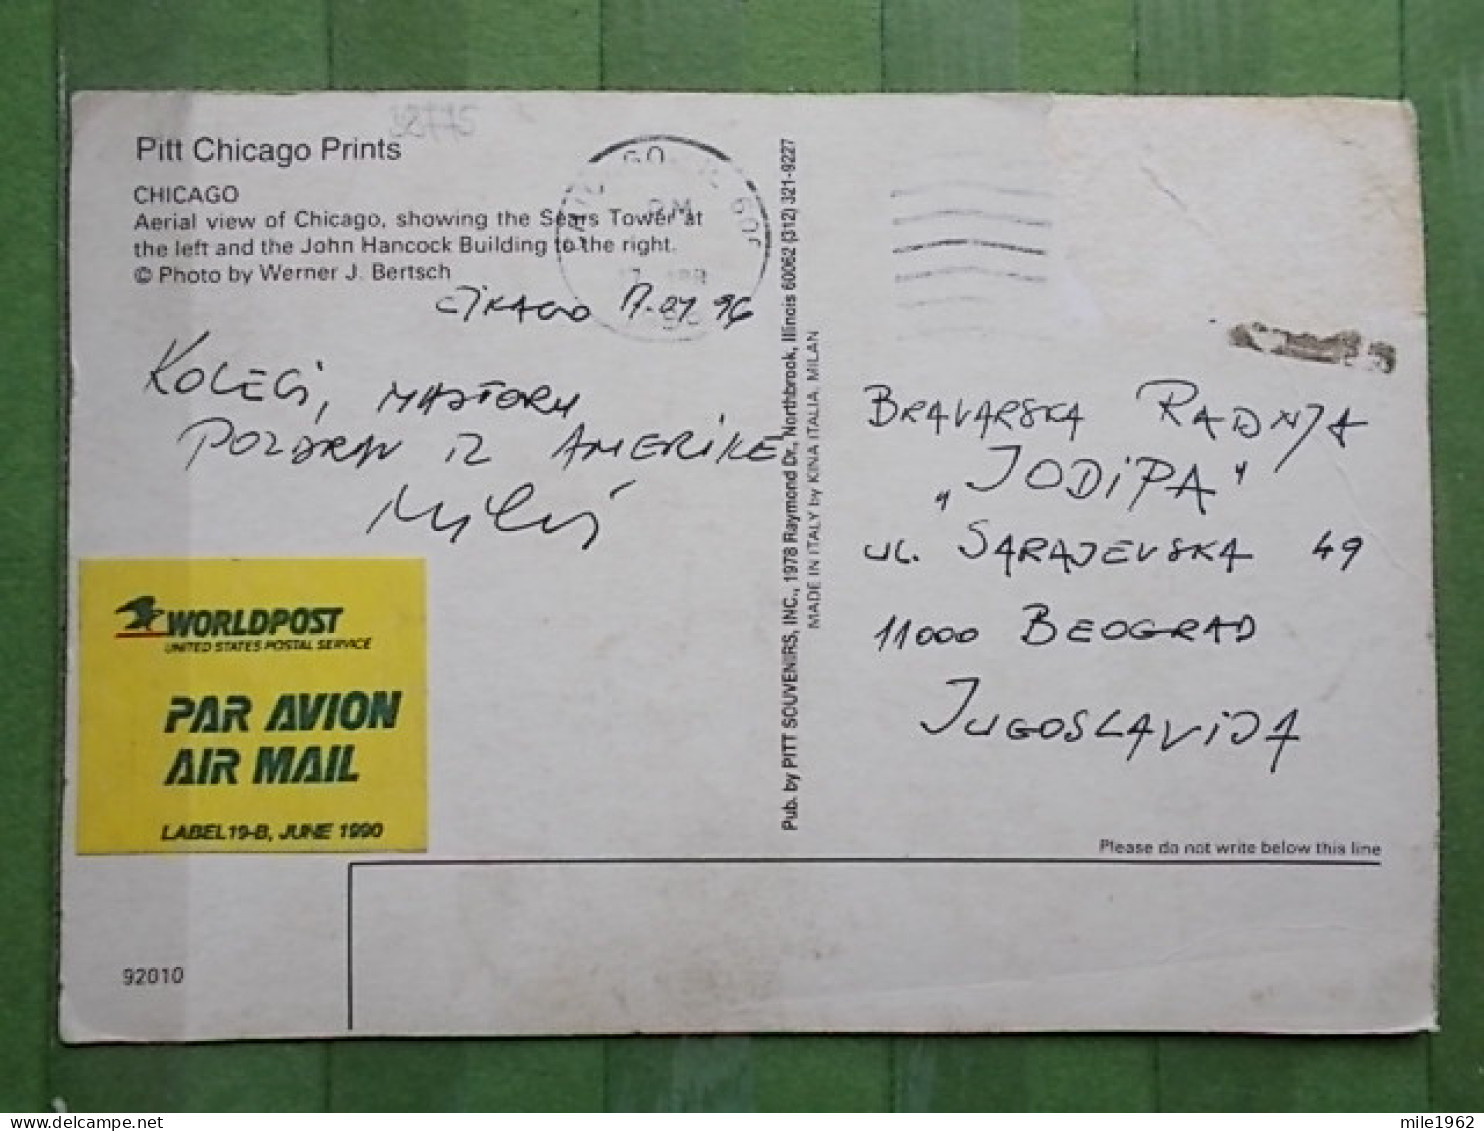 92775
Pitt Chicago Prints
CHICAGO
Aerial view of Chicago, showing the Sears Tower at
the left and the John Hancock Building to the right.
© Photo by Werner J. Bertsch
ČIKAGO 17.04 96
KOLEGI, MAJSTORU
POZDRAV IZ AMERIKE
PM
17 APR
WORLDPOST
UNITED STATES POSTAL SERVICE
PAR AVION
AIR MAIL
LABEL 19-B, JUNE 1990
92010
Pub. by PITT SOUVENIRS, INC., 1978 Raymond Dr., Northbrook, Illinois 60062 (312) 321-9227
MADE IN ITALY by KINA ITALIA, MILAN
BRAVARSKA RADNJA
„JODIPA"
UL. SARAJEVSKA 49
11000 BEOGRAD
JUGOSLAVIJA
Please do not write below this line
mile1962